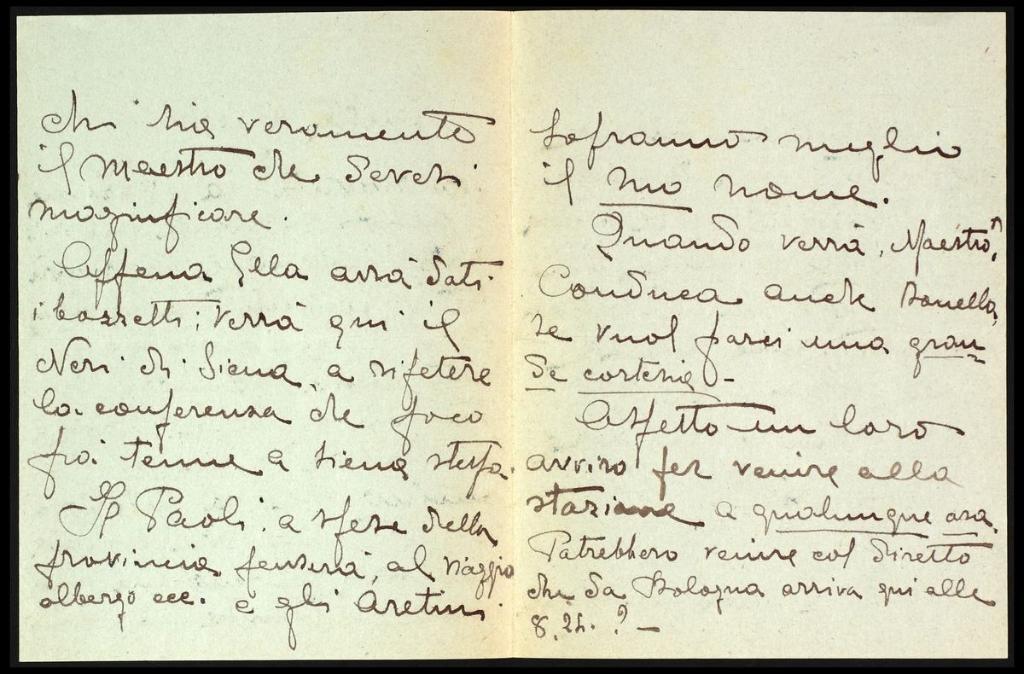 chi sia veramente
il Maestro che devesi
magnificare.
Appena Ella avrà dati
i bozzetti, verrà qui il
Neri di Siena, a ripetere
la conferenza che poco
fa tenne a Siena stessa.
Il Paoli, a spese della
provincia penserà, al viaggio
albergo ecc. e gli Aretini
sapranno meglio
il suo nome.
Quando verrà, Maestro?
Conduca anche
se vuol farci una gran-
de cortesia -
Aspetto un loro
avviso per venire alla
stazione a qualunque ora.
Potrebbero venire col diretto
che da Bologna arriva qui alle
8,24. ? -